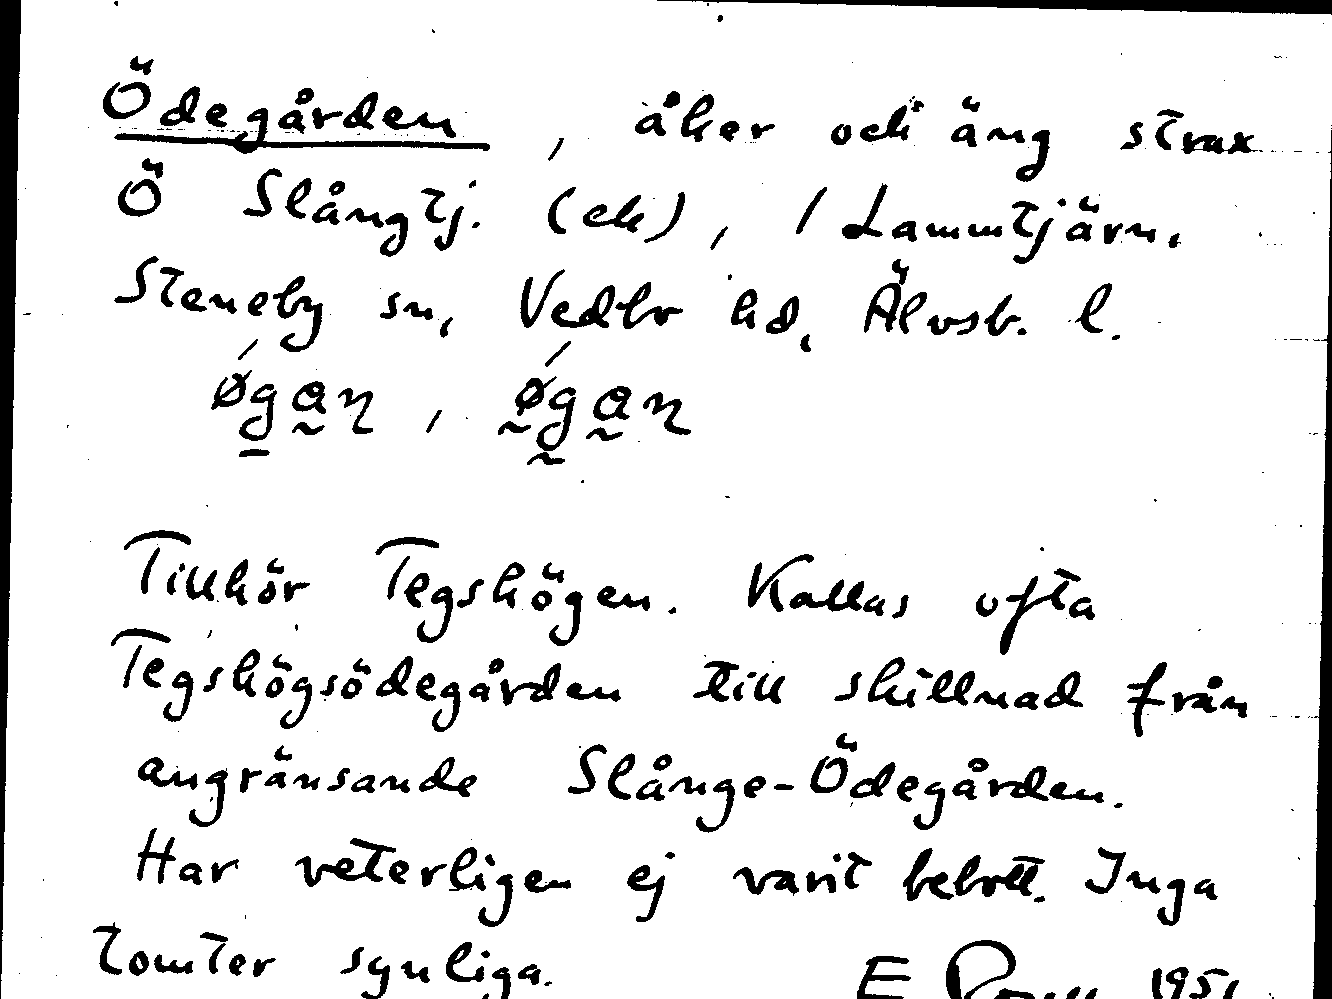 Ödegården, åker och äng strax
Ö Slångtj. (ek), / Lammtjärn,
Steneby sn, Vedbo hd, Älvsb. l.
øgan, øgan
Tillhör Tegshögen. Kallas ofta
Tegshögsödegården till skillnad från
angränsande Slånge-Ödegården.
Har veterligen ej varit bebott. Inga
tomter synliga.
E